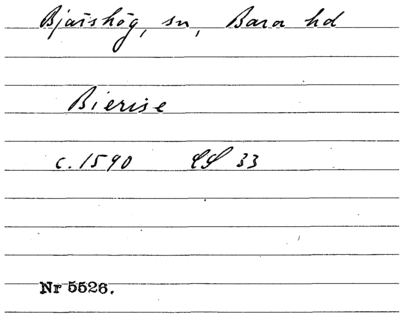 Bjärshög, sn, Bara hd
Bierise
c. 1590 LS 33
Nr 5526.